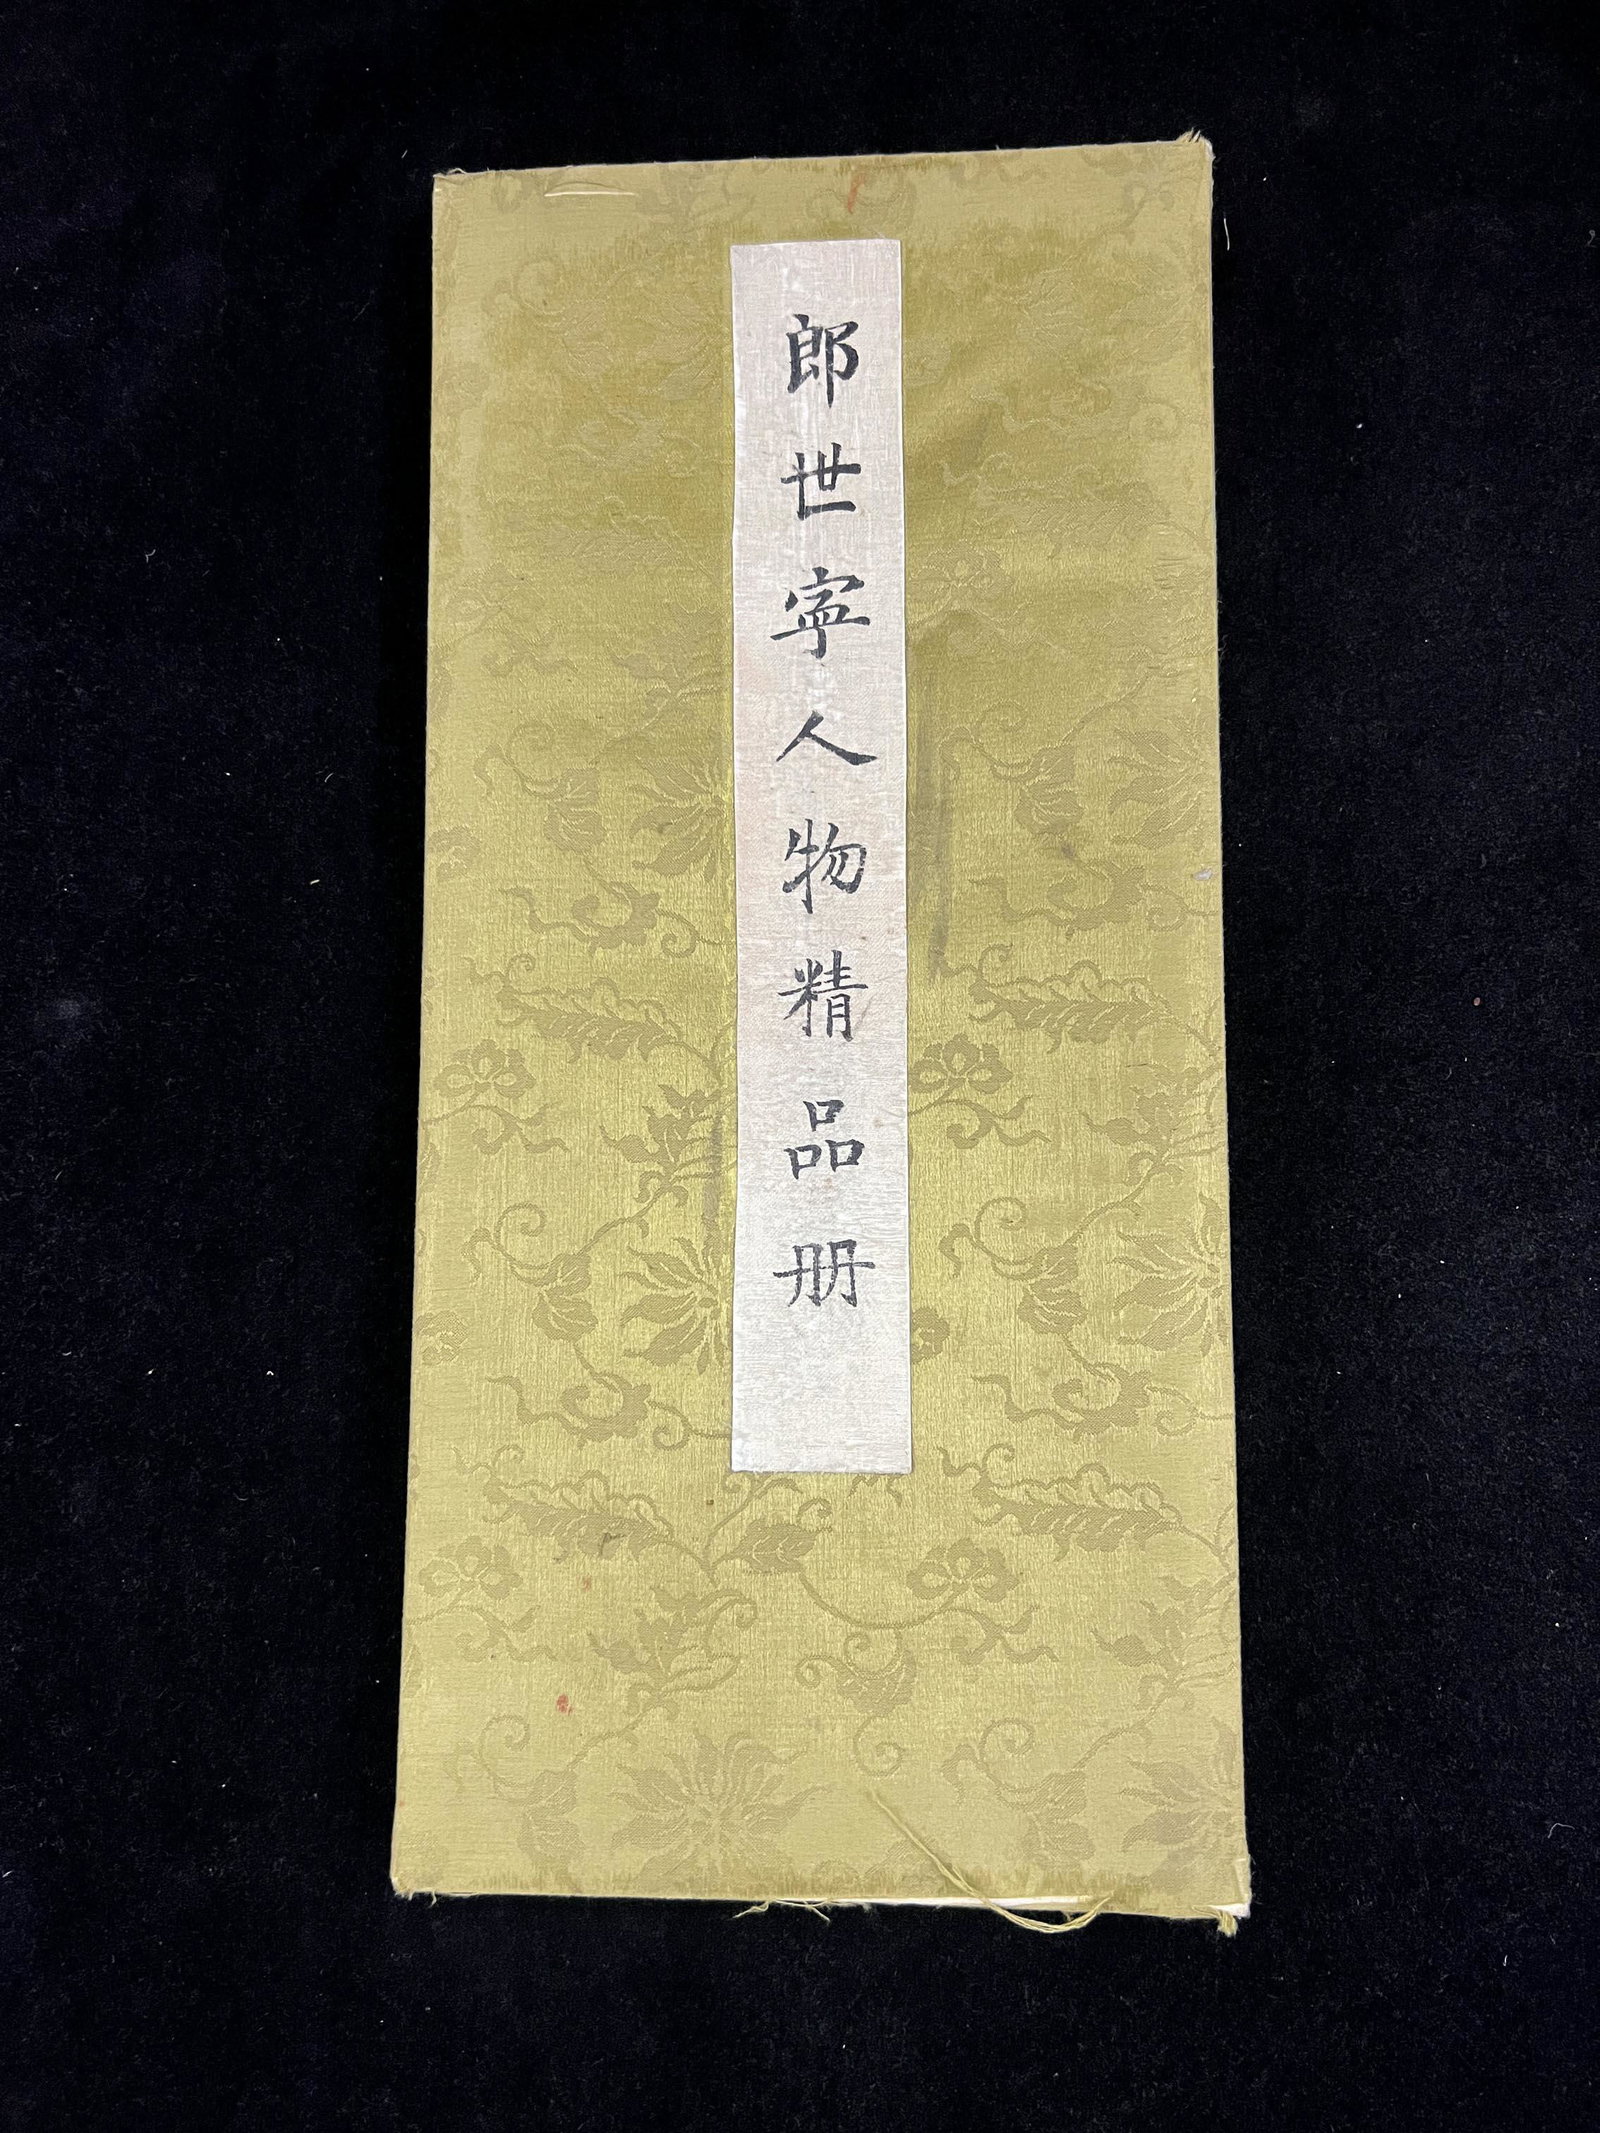 郎世寧人物精品册